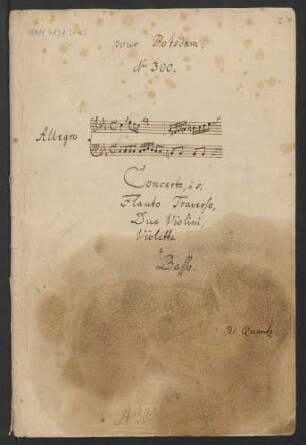 pour Potsdam.
No. 300.
Allegro
Concerto, à 5.
Flauto Traverso,
Due Violini,
Violetta
e
Basso.
di Quantz.